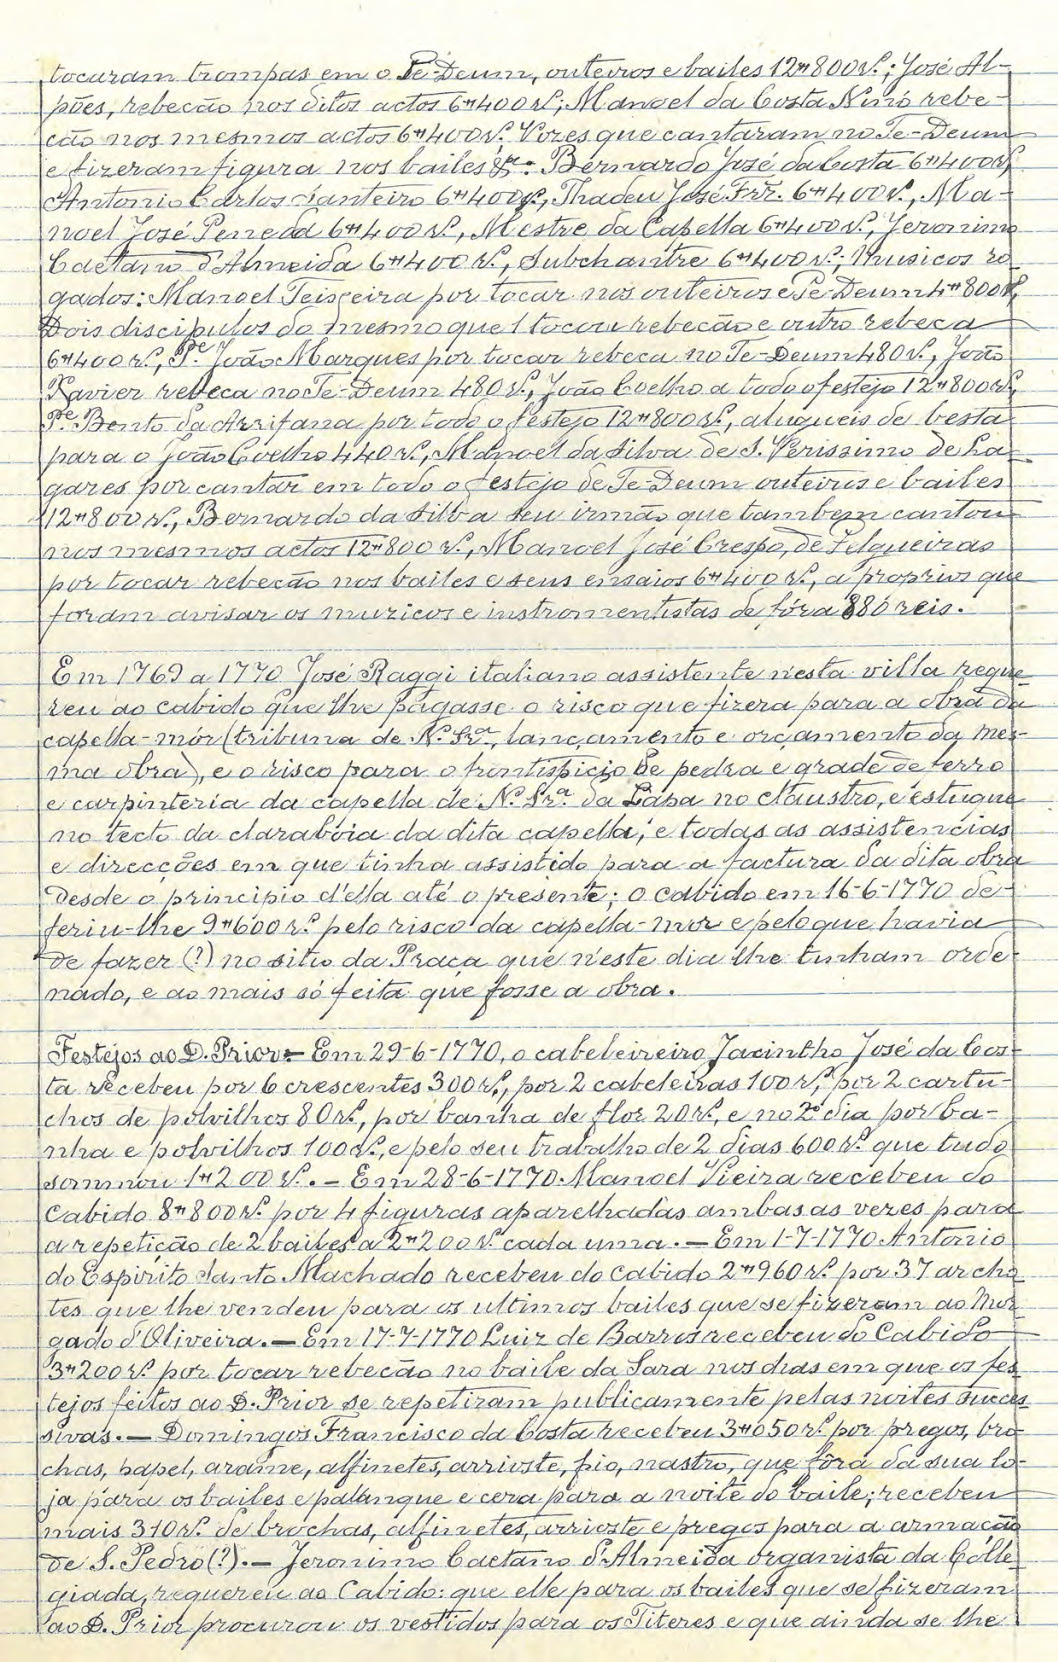 tocaram trompas em o Te-Deum, outeiros e bailes 12#800 rs.; José Al-
pões, rebecão nos ditos actos 6#400 rs.; Manoel da Costa Nino rebe-
cão nos mesmos actos 6#400 rs. Vozes que cantaram no Te-Deum
e fizeram figura nos bailes &ª: Bernardo José da Costa 6#400 rs,
Antonio Carlos Santeiro 6#400 rs., Thadeu José Frz. 6#400 rs., Ma-
noel José Peneda 6#400 rs., Mestre da Capella 6#400 rs., Jeronimo
Caetano d'Almeida 6#400 rs., Subchantre 6#400 rs.; Musicos ro-
gados: Manoel Teixeira por tocar nos outeiros e Te-Deum 4#800 rs,
Dois discipulos do mesmo que 1 tocou rebecão e outro rebeca
6#400 rs., Pe. João Marques por tocar rebeca no Te-Deum 480 rs., João
Xavier rebeca no Te-Deum 480 rs., João Coelho a todo o festejo 12#800 rs.,
Pe. Bento da Arrifana por todo o festejo 12#800 rs., alugueis de besta
para o João Coelho 440 rs., Manoel da Silva de S. Verissimo de La-
gares por cantar em todo o festejo de Te-Deum outeiros e bailes
12#800 rs., Bernardo da Silva seu irmão que tambem cantou
nos mesmos actos 12#800 rs., Manoel José Crespo, de Felgueiras
por tocar rebecão nos bailes e seus ensaios 6#400 rs., a proprios que
foram avisar os muzicos e instromentistas de fóra 880 reis.
Em 1769 a 1770 José Raggi italiano assistente n'esta villa reque-
reu ao cabido que lhe pagasse o risco que fizera para a obra da
capella-mór (tribuna de N. Srª., lançamento e orçamento da mes-
ma obra), e o risco para o frontispicio de pedra e grade de ferro
e carpinteria da capella de N. Srª. da Lapa no claustro, e estuque
no tecto da claraboia da dita capella, e todas as assistencias
e direcções em que tinha assistido para a factura da dita obra
desde o principio d'ella até o presente; o cabido em 16-6-1770 de-
feriu-lhe 9#600 rs. pelo risco da capella-mor e pelo que havia
de fazer (?) no sitio da Praça que n'este dia lhe tinham orde-
nado, e ao mais só feita que fosse a obra.
Festejos ao D. Prior - Em 29-6-1770, o cabeleireiro Jacintho José da Cos-
ta recebeu por 6 crescentes 300 rs., por 2 cabeleiras 100 rs., por 2 cartu-
chos de polvilhos 80 rs., por banha de flor 20 rs., e no 2º dia por ba-
nha e polvilhos 100 rs., e pelo seu trabalho de 2 dias 600 rs. que tudo
sommou 1#200 rs. - Em 28-6-1770 Manoel Vieira recebeu do
Cabido 8#800 rs. por 4 figuras aparelhadas ambas as vezes para
a repetição de 2 bailes a 2#200 rs. cada uma. - Em 1-7-1770 Antonio
do Espirito Santo Machado recebeu do cabido 2#960 rs. por 37 archo-
tes que lhe vendeu para os ultimos bailes que se fizeram ao Mor-
gado d'Oliveira. - Em 17-7-1770 Luiz de Barros recebeu do Cabido
3#200 rs. por tocar rebecão no baile da Sara nos dias em que os fes-
tejos feitos ao D. Prior se repetiram publicamente pelas noites succes-
sivas. - Domingos Francisco da Costa recebeu 3#050 rs. por pregos, bro-
chas, papel, arame, alfinetes, arrioste, fio, nastro, que fôra da sua lo-
ja para os bailes e palanque e cera para a noite do baile; recebeu
mais 310 rs. de brochas, alfinetes, arrioste e pregos para a armação
de S. Pedro (?). - Jeronimo Caetano d'Almeida organista da Colle-
giada, requereu ao Cabido: que elle para os bailes que se fizeram
ao D. Prior procurou os vestidos para os Titeres e que ainda se lhe